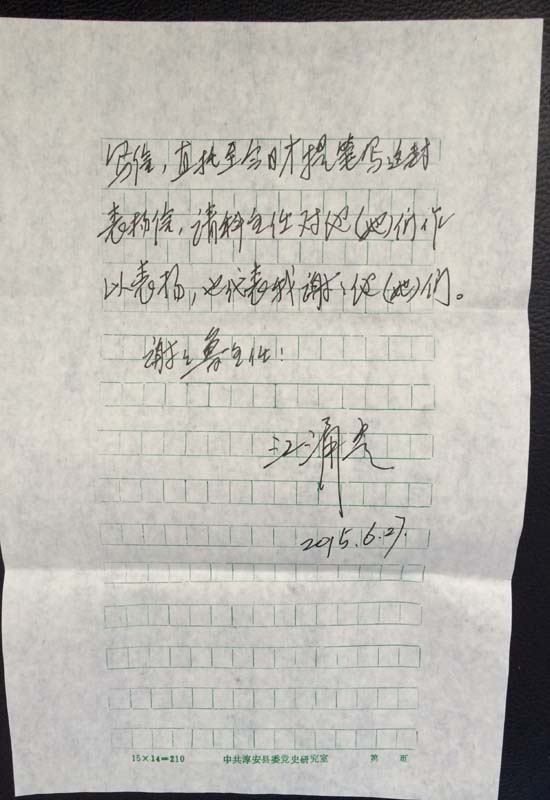 写信，直拖至今日才提笔写这封
表扬信，请科主任对他(她)们作
以表扬，也代表我谢谢他(她)们。
谢谢鲁主任！
江涌贵
2015.6.27.
15×14=210 中共淳安县委党史研究室 第 页